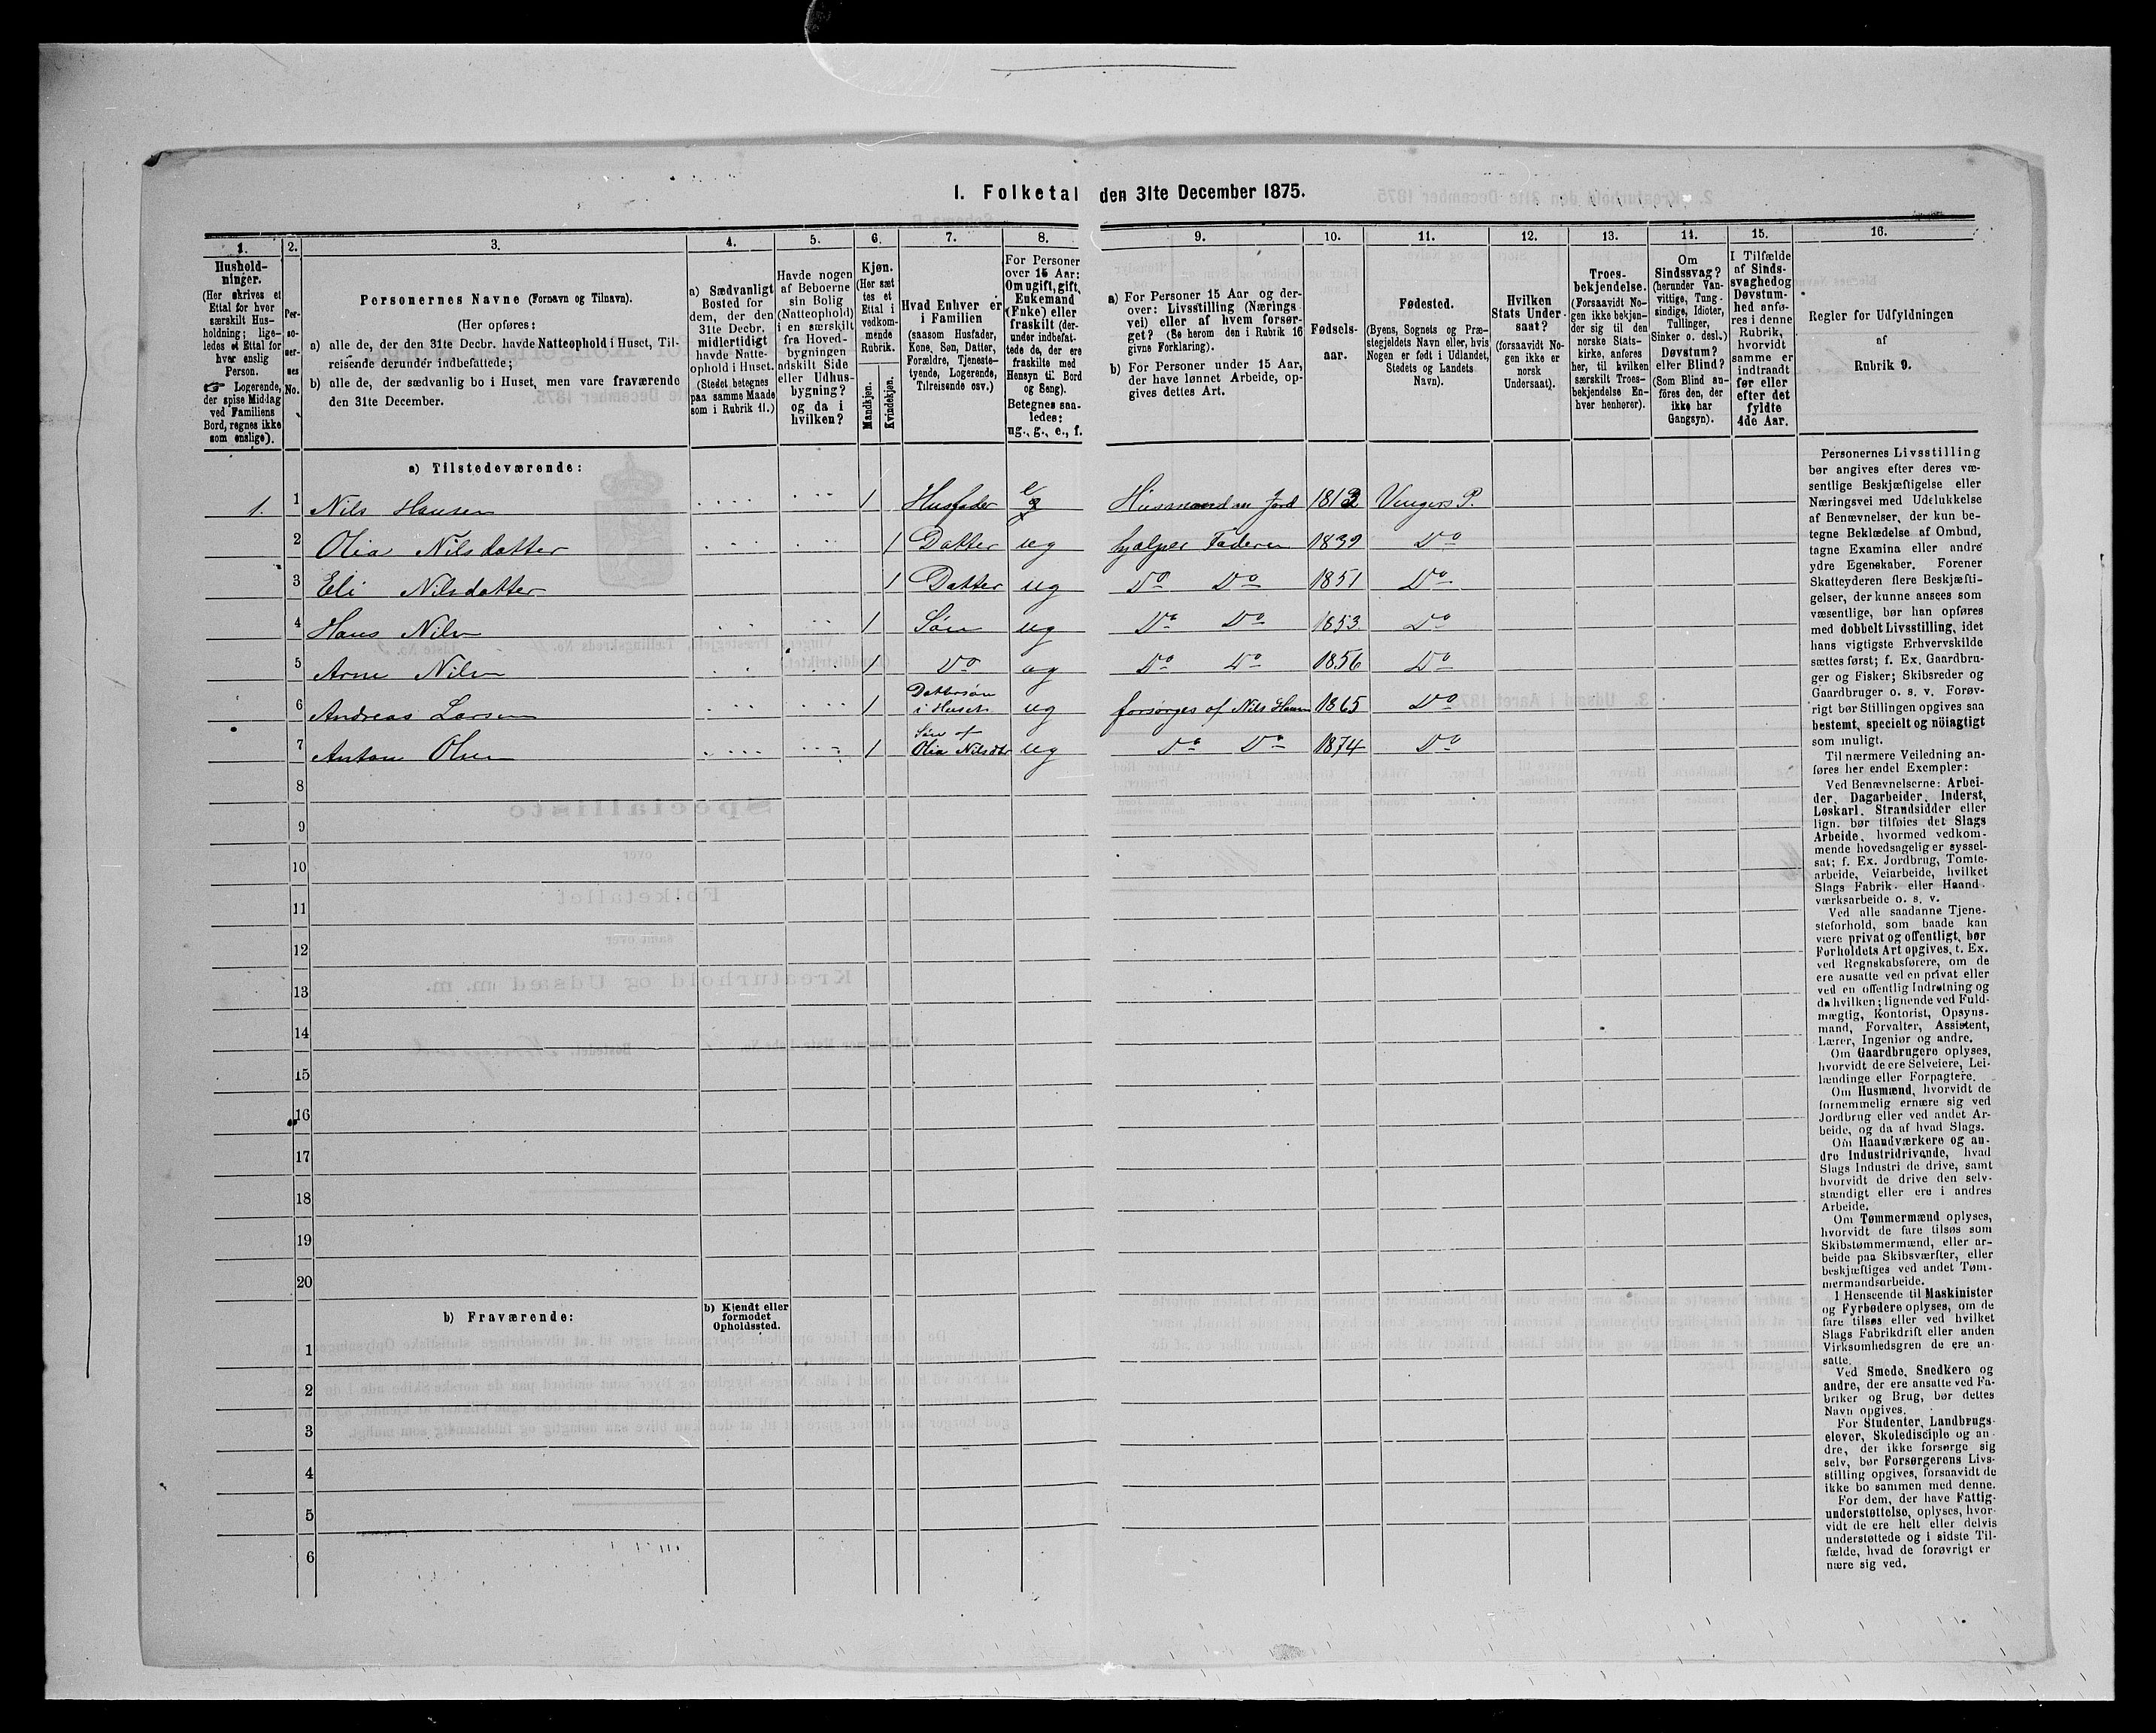 I. Folketal den 31te December 1875.
1. 2. 3. 4. 5. 6. 7. 8. 9. 10. 11. 12. 13. 14. 15. 16.
Hushold-
ninger.
(Her skrives et
Ettal for hver
særskilt Hus-
holdning; lige-
ledes et Ettal for
hver enslig
Person.
☞ Logerende,
der spise Middag
ved Familiens
Bord, regnes ikke
som enslige).
Per-
so-
ner-
nes
No.
Personernes Navne (Fornavn og Tilnavn).
(Her opføres:
a) alle de, der den 31te Decbr. havde Natteophold i Huset, Til-
reisende derunder indbefattede;
b) alle de, der sædvanlig bo i Huset, men vare fraværende
den 31te December.
a) Sædvanligt
Bosted for
dem, der den
31te Decbr.
midlertidigt
havde Natte-
ophold i Huset.
(Stedet betegnes
paa samme Maade
som i Rubrik 11.)
Havde nogen
af Beboerne
sin Bolig
(Natteophold)
i en særskilt
fra Hoved-
bygningen
adskilt Side
eller Udhus-
bygning?
og da i
hvilken?
Kjøn.
(Her sæt
tes et
Ettal i
vedkom-
mende
Rubrik.
Mandkjøn.
Kvindekjøn.
Hvad Enhver er
i Familien
(saasom Husfader,
Kone, Søn, Datter,
Forældre, Tjeneste-
tyende, Logerende,
Tilreisende osv.)
For Personer
over 15 Aar:
Om ugift, gift,
Enkemand
(Enke) eller
fraskilt (der-
under indbefat-
tede de, der ere
fraskilte med
Hensyn til Bord
og Seng).
Betegnes saa-
ledes:
ug., g., e., f.
a) For Personer 15 Aar og der-
over: Livsstilling (Nærings
vei) eller af hvem forsør-
get? (Se herom den i Rubrik 16
givne Forklaring).
b) For Personer under 15 Aar,
der have lønnet Arbeide, op-
gives dettes Art.
Fødsels-
aar.
Fødested.
(Byens, Sognets og Præ-
stegjeldets Navn eller, hvis
Nogen er født i Udlandet,
Stedets og Landets
Navn).
Hvilken
Stats Under-
saat?
(forsaavidt No-
gen ikke er
norsk
Undersaat).
Troes-
bekjendelse.
(Forsaavidt No-
gen ikke bekjen-
der sig til den
norske Stats-
kirke, anføres
her, til hvilken
særskilt Troes-
bekjendelse En-
hver henhører).
Om
Sindssvag?
(herunder Van-
vittige, Tung-
sindige, Idioter,
Tullinger,
Sinker o. desl.)
Døvstum?
eller Blind?
(Som Blind an-
føres den, der
ikke har
Gangsyn).
I Tilfælde
af Sinds-
svaghed og
Døvstum-
hed anfø-
res i denne
Rubrik,
hvorvidt
samme er
indtraadt
før eller
efter det
fyldte
4de Aar.
Regler for Udfyldningen
af
Rubrik 9.
a) Tilstedeværende:
1. 1 Nils Hansen 1 Husfader e Husmand m Jord 1812 Vingers P.
2 Olia Nilsdatter 1 Datter ug hjælper Faderen 1839 Do
3 Eli Nilsdatter 1 Datter ug Do Do 1851 Do
4 Hans Nilsn 1 Søn ug Do Do 1853 Do
5 Arne Nilsn 1 Do ug Do Do 1856 Do
6 Andreas Larsen 1 Dattersøn i Huset ug forsørges af Nils Hansen 1865 Do
7 Anton Olsen 1 Søn af Olia Nilsdtr ug Do Do 1874 Do
8
9
10
11
12
13
14
15
16
17
18
19
20
b) Fraværende:
b) Kjendt eller
formodet
Opholdssted.
1
2
3
4
5
6
Personernes Livsstilling
bør angives efter deres væ-
sentlige Beskjæftigelse eller
Næringsvei med Udelukkelse
af Benævnelser, der kun be-
tegne Beklædelse af Ombud,
tagne Examina eller andre
ydre Egenskaber. Forener
Skatteyderen flere Beskjæfti-
gelser, der kunne ansees som
væsentlige, bør han opføres
med dobbelt Livsstilling, idet
hans vigtigste Erhvervskilde
sættes først; f. Ex. Gaardbru-
ger og Fisker; Skibsreder og
Gaardbruger o. s. v. Forøv-
rigt bør Stillingen opgives saa
bestemt, specielt og nöiagtigt
som muligt.
Til nærmere Veiledning an-
føres her endel Exempler:
Ved Benævnelserne: Arbei-
der, Dagarbeider, Inderst,
Løskarl, Strandsidder eller
lign. bør tilføies det Slags
Arbeide, hvormed vedkom-
mende hovedsagelig er syssel-
sat; f. Ex. Jordbrug, Tomte-
arbeide, Veiarbeide, hvilket
Slags Fabrik- eller Haand-
værksarbeide o. s. v.
Ved alle saadanne Tjene-
steforhold, som baade kan
være privat og offentligt, bør
Forholdets Art opgives, t. Ex.
ved Regnskabsførere, om de
ere ansatte ved en privat eller
ved en offentlig Indretning og
da hvilken; lignende ved Fuld-
mægtig, Kontorist, Opsyns-
mand, Forvalter, Assistent,
Lærer, Ingeniør og andre.
Om Gaardbrugere oplyses,
hvorvidt de ere Selveiere, Lei-
lændinge eller Forpagtere.
Om Husmænd, hvorvidt de
fornemmelig ernære sig ved
Jordbrug eller ved andet Ar-
beide, og da af hvad Slags.
Om Haandværkere og an-
dre Industridrivende, hvad
Slags Industri de drive, samt
hvorvidt de drive den selv-
stændigt eller ere i andres
Arbeide.
Om Tømmermænd oplyses,
hvorvidt de fare tilsøs som
Skibstømmermænd, eller ar-
beide paa Skibsværfter, eller
beskjæftiges ved andet Tøm-
mermandsarbeide.
I Henseende til Maskinister
og Fyrbødere oplyses, om de
fare tilsøs eller ved hvilket
Slags Fabrikdrift eller anden
Virksomhedsgren de ere an-
satte.
Ved Smede, Snedkere og
andre, der ere ansatte ved Fa-
briker og Brug, bør dettes
Navn opgives.
For Studenter, Landbrugs-
elever, Skoledisciple og an-
dre, der ikke forsørge sig
selv, bør Forsørgerens Livs-
stilling opgives, forsaavidt de
ikke bo sammen med denne.
For dem, der have Fattig-
understøttelse, oplyses, hvor-
vidt de ere helt eller delvis
understøttede og i sidste Til-
fælde, hvad de forøvrigt er
nære sig ved.